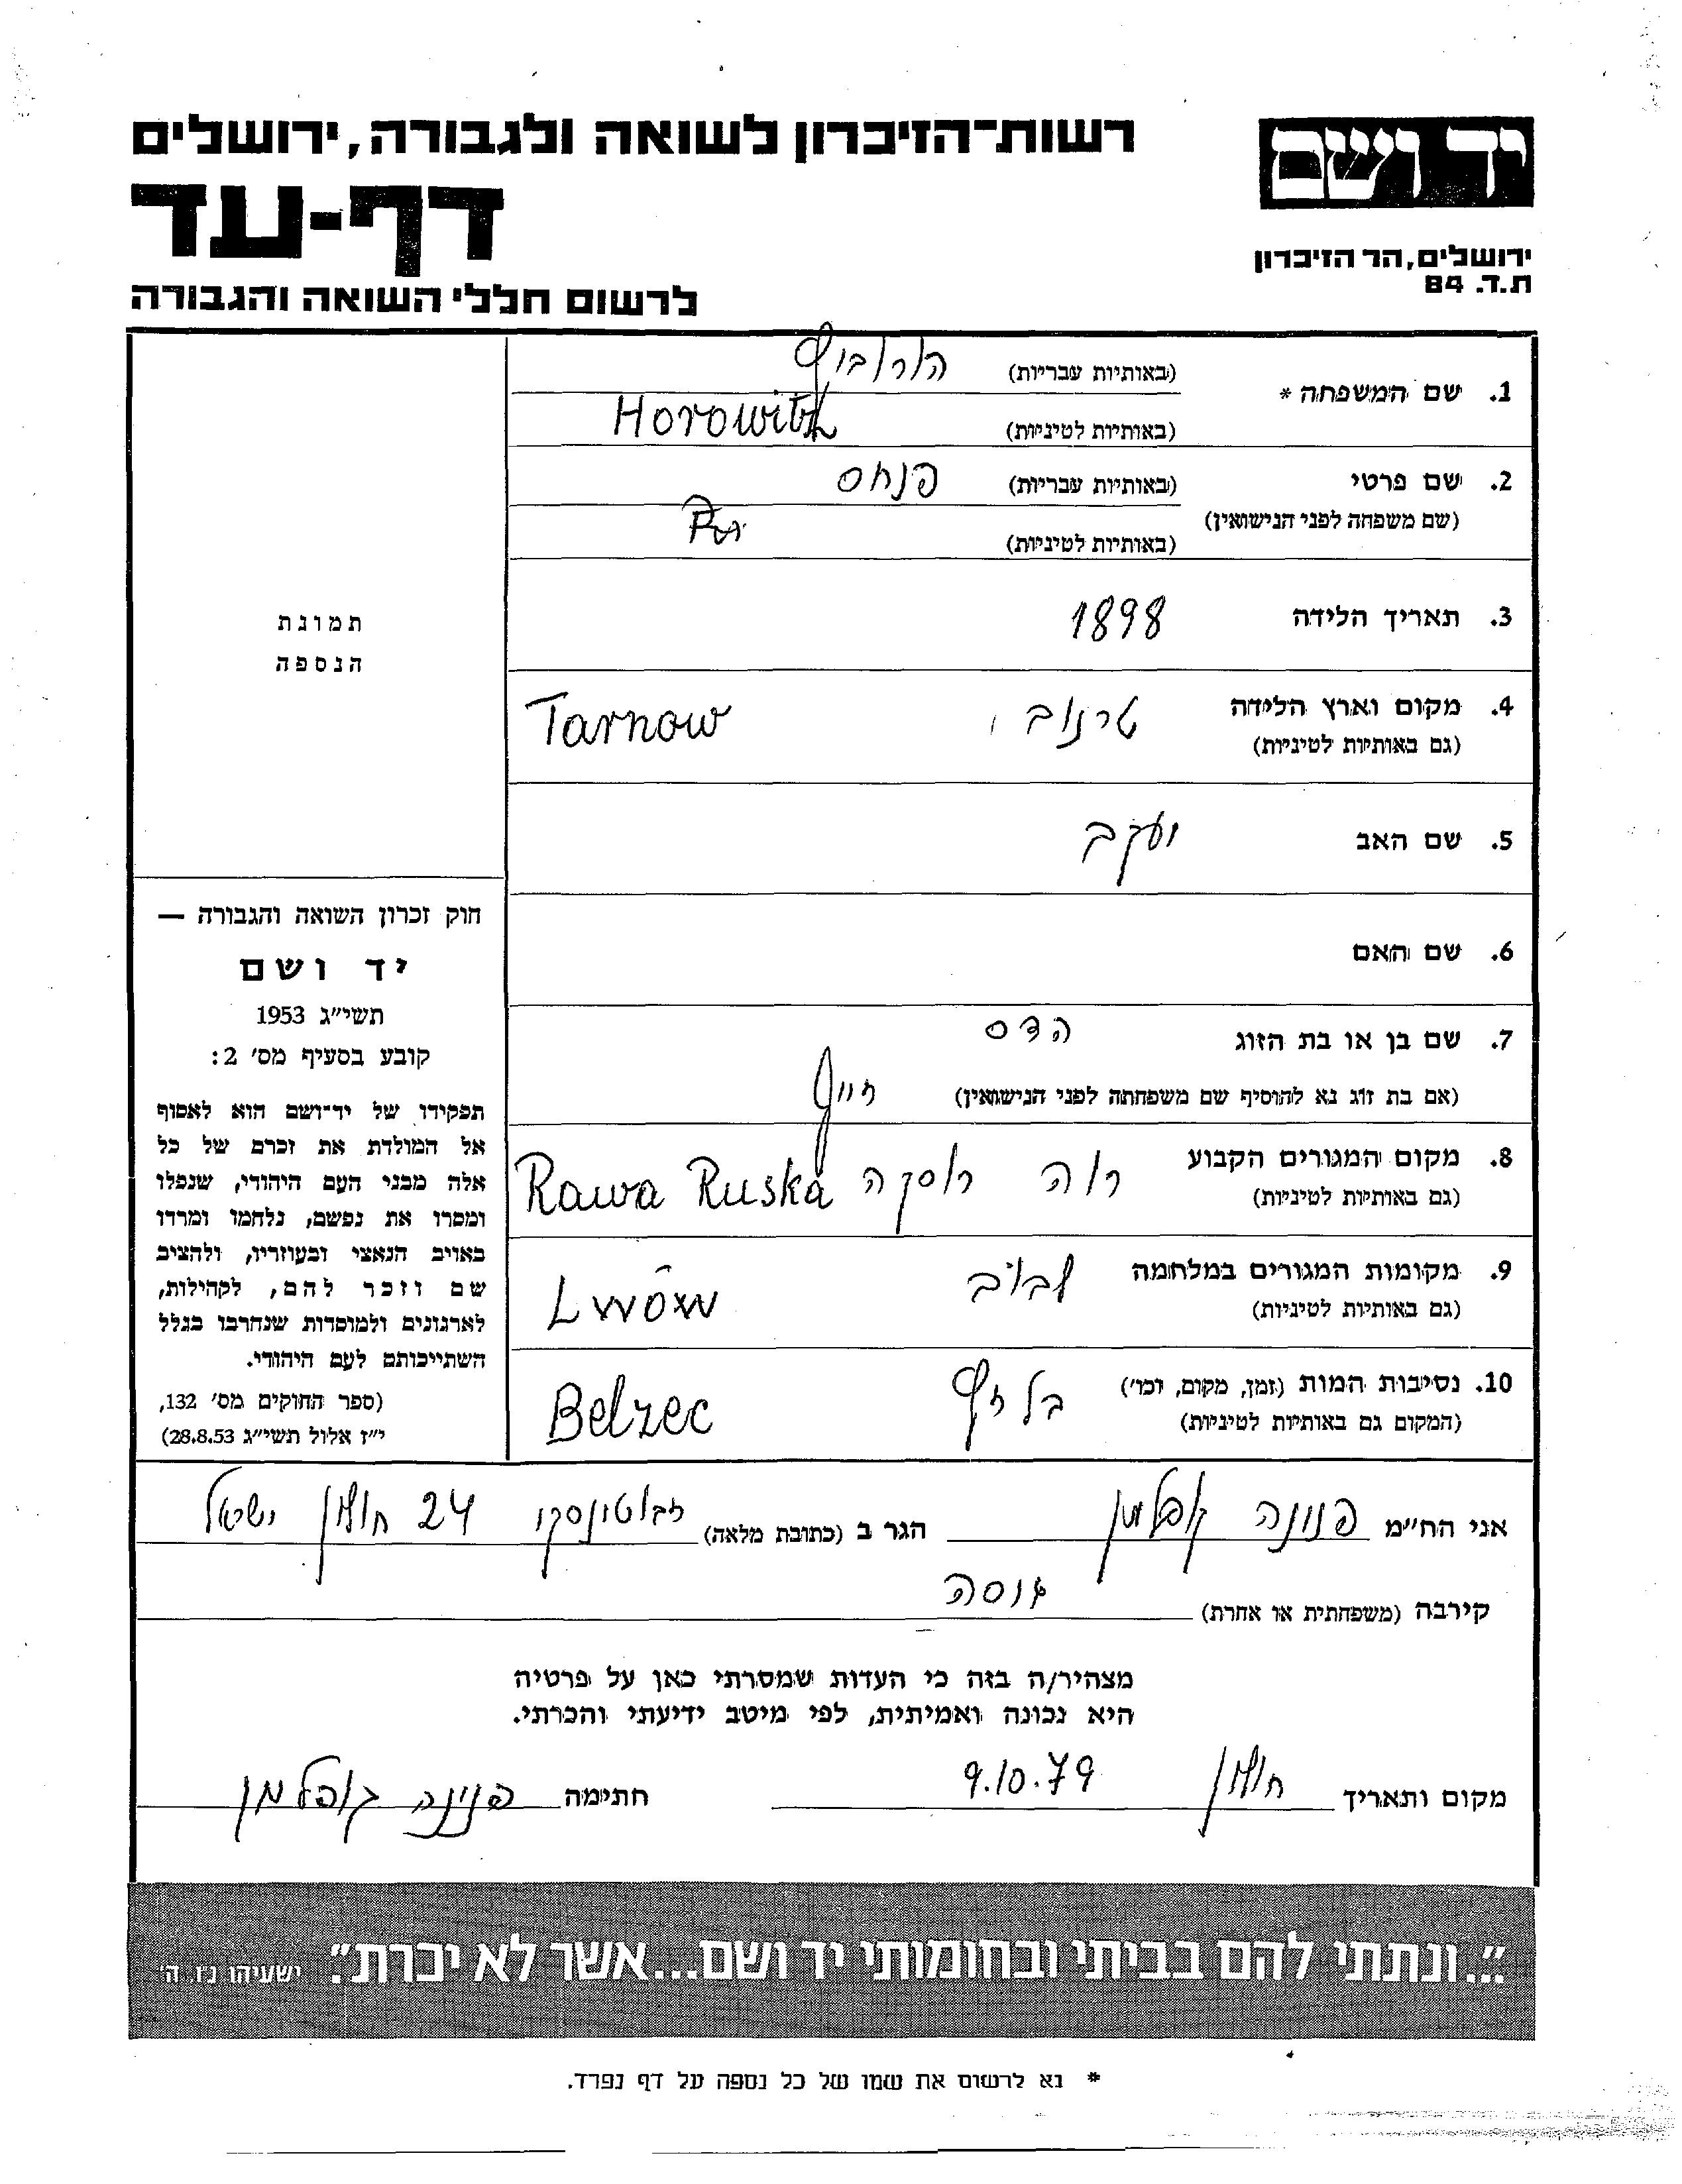 יד ושם
ירושלים, הר הזיכרון
ת.ד. 84
רשות-הזיכרון לשואה ולגבורה, ירושלים
דף-עד
לרשום חללי השואה והגבורה
1. שם המשפחה * (באותיות עבריות) הורוביץ
(באותיות לטיניות) Horowitz
2. שם פרטי (באותיות עבריות) פנחס
(שם משפחה לפני הנישואין)
(באותיות לטיניות)
3. תאריך הלידה 1898
4. מקום וארץ הלידה טרנוב, Tarnow
(גם באותיות לטיניות)
5. שם האב יעקב
6. שם האם
7. שם בן או בת הזוג הדס
(אם בת זוג נא להוסיף שם משפחתה לפני הנישואין)
8. מקום המגורים הקבוע רוה רוסקה Rawa Ruska
(גם באותיות לטיניות)
9. מקומות המגורים במלחמה לבוב Lwów
(גם באותיות לטיניות)
10. נסיבות המות (זמן, מקום, וכו') בלזץ Belzec
(המקום גם באותיות לטיניות)
תמונת
הנספה
חוק זכרון השואה והגבורה —
יד ושם
תשי״ג 1953
קובע בסעיף מס׳ 2:
תפקידו של יד־ושם הוא לאסוף
אל המולדת את זכרם של כל
אלה מבני העם היהודי, שנפלו
ומסרו את נפשם, נלחמו ומרדו
באויב הנאצי ובעוזריו, ולהציב
שם וזכר להם, לקהילות,
לארגונים ולמוסדות שנחרבו בגלל
השתייכותם לעם היהודי.
(ספר החוקים מס׳ 132,
י״ז אלול תשי״ג 28.8.53)
אני הח״מ פנינה קופלמן הגר ב (כתובת מלאה) ז׳בוטינסקי 24 חולון ישראל
קירבה (משפחתית או אחרת) גיסה
מצהיר/ה בזה כי העדות שמסרתי כאן על פרטיה
היא נכונה ואמיתית, לפי מיטב ידיעתי והכרתי.
מקום ותאריך חולון 9.10.79 חתימה פנינה קופלמן
״...ונתתי להם בביתי ובחומותי יד ושם...אשר לא יכרת״. ישעיהו נ״ו ה׳
* נא לרשום את שמו של כל נספה על דף נפרד.